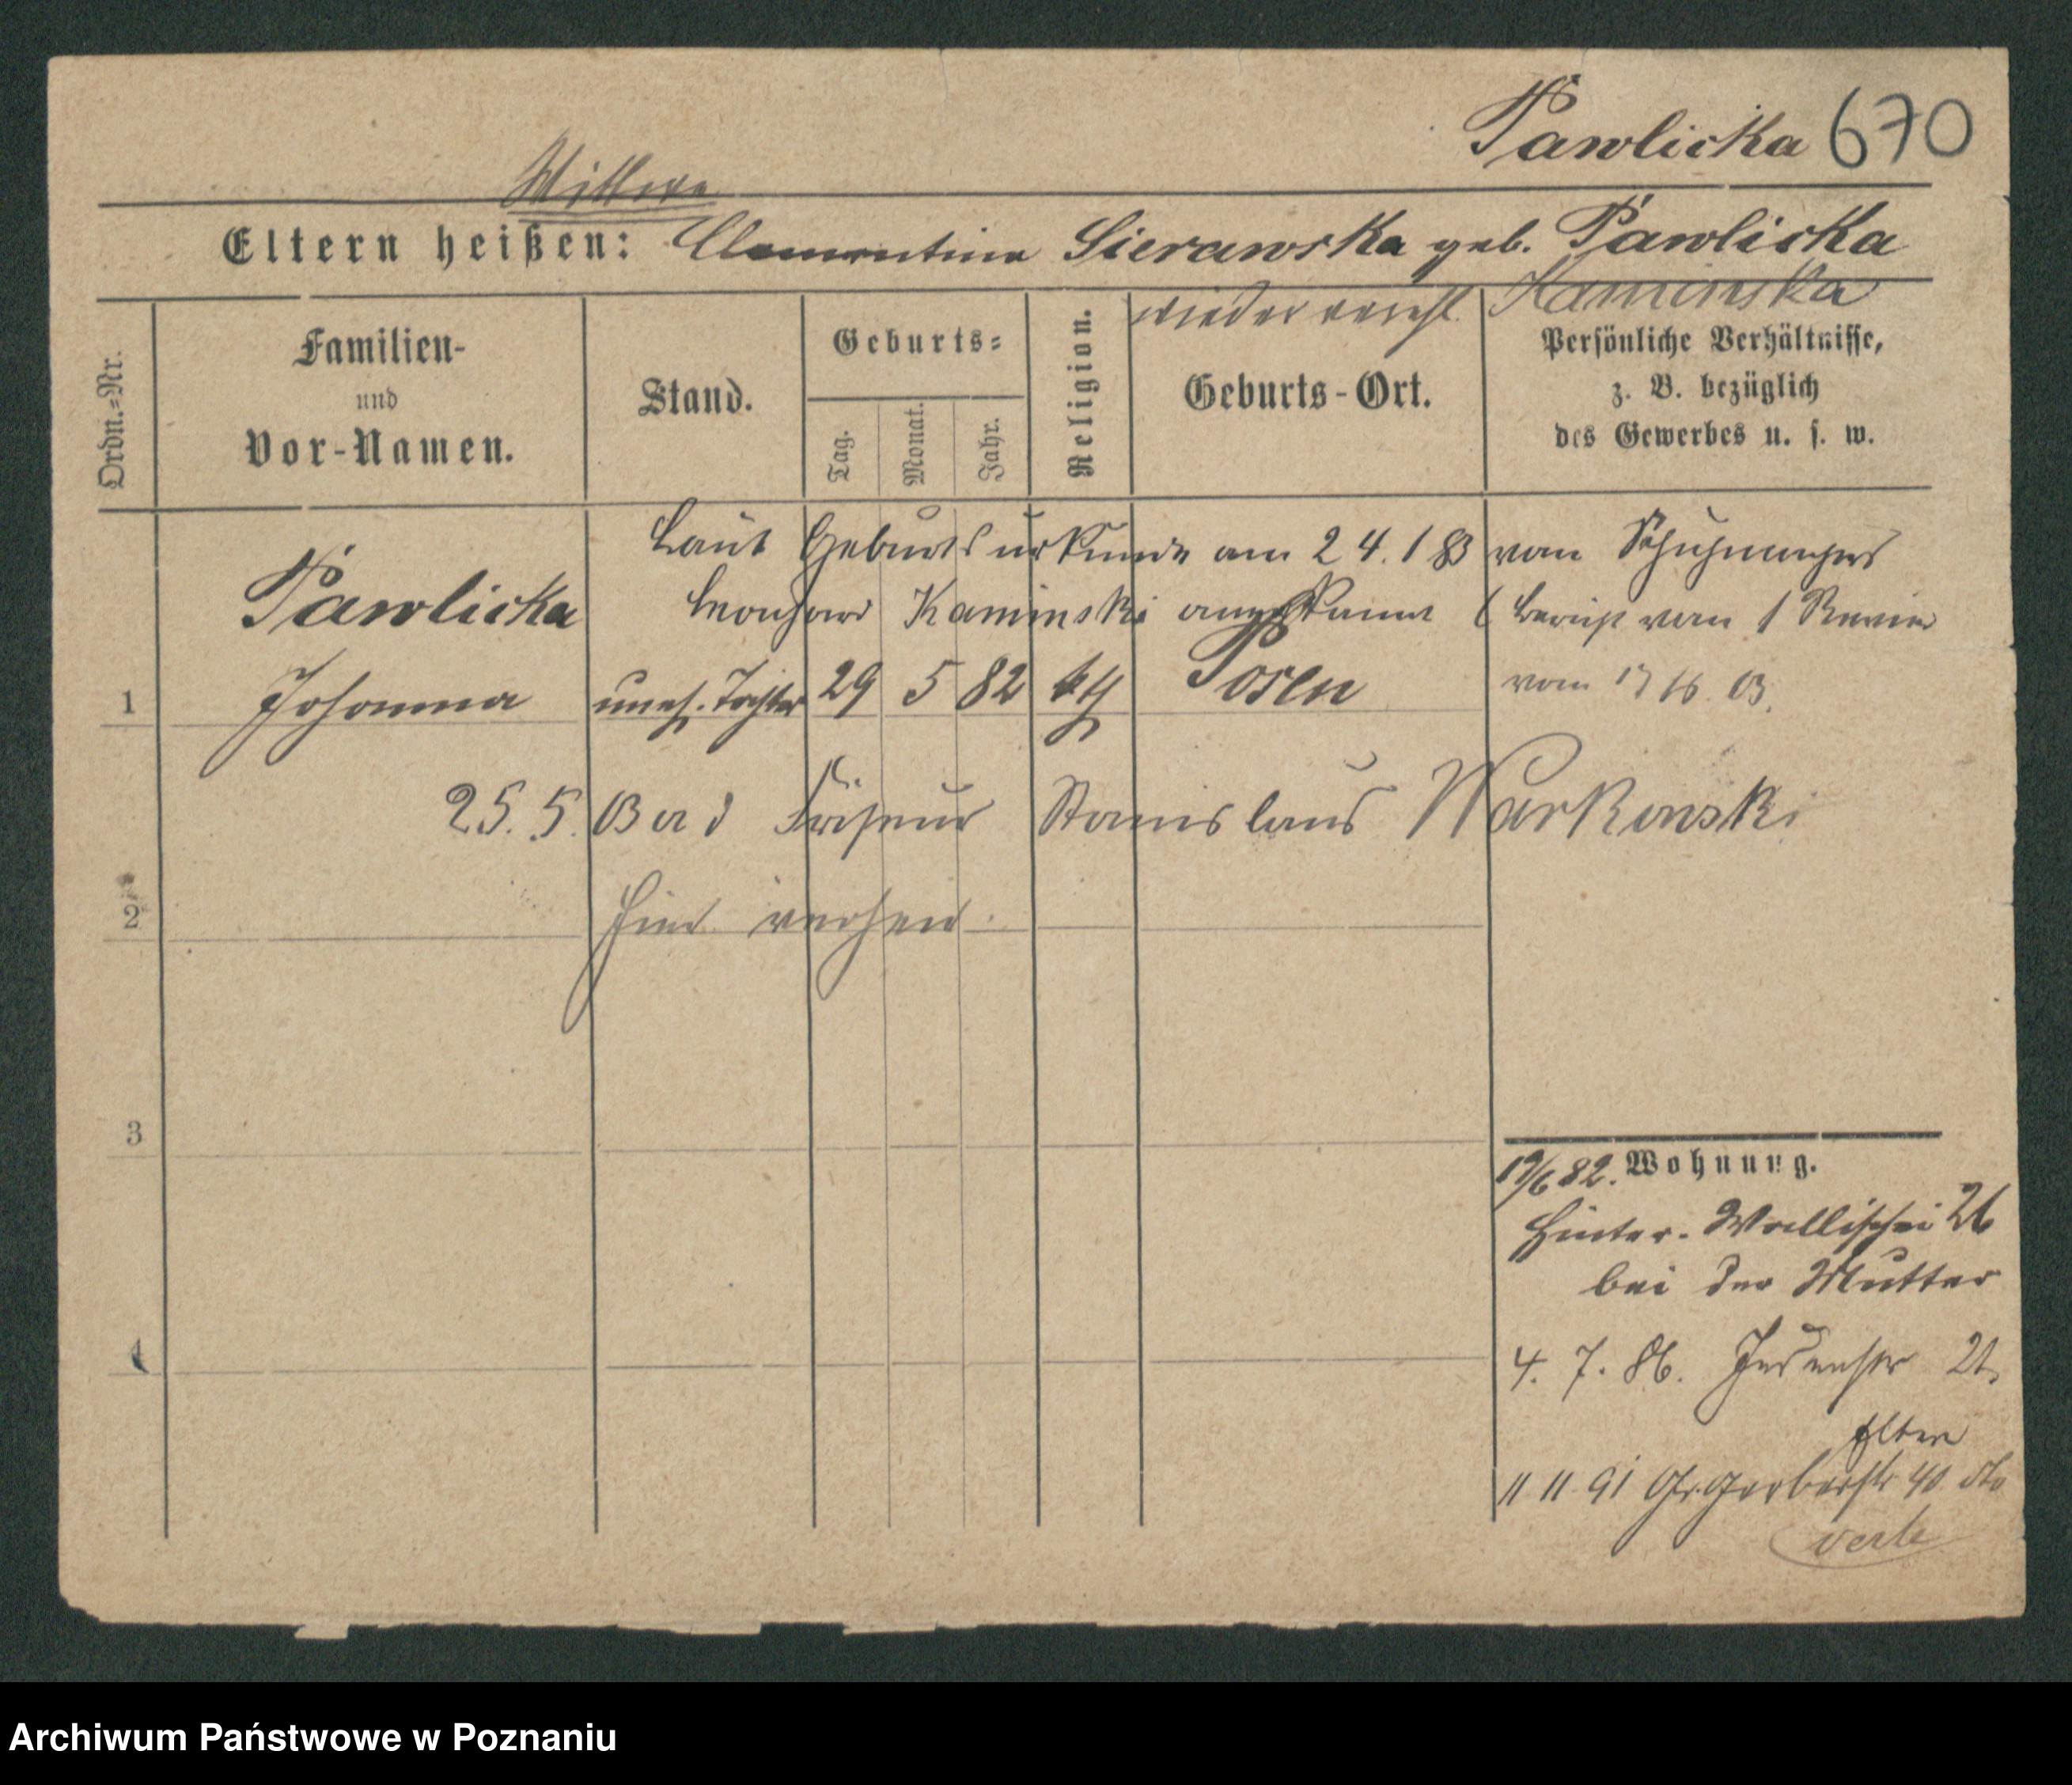 Pawlicka 670
Wittwe
Eltern heißen: Clementine Sierawska geb. Pawlicka
wiederverehl. Kaminska
Ordn.-Nr.
Familien-
und
Vor-Namen.
Stand.
Geburts-
Tag.
Monat.
Jahr.
Religion.
Geburts-Ort.
Persönliche Verhältnisse,
z. B. bezüglich
des Gewerbes u. s. w.
Laut Geburtsurkunde am 24.1 83 vom Schuhmacher
Pawlicka Leonhard Kaminski anerkannt (Bericht vom 1 Revier
1 Johanna uneh. Tochter 29 5 82 kth Posen vom
25. 5. 03 Friseur Stanislaus Warkowski
2 hier verheir.
3
4
19/6 82. Wohnung.
Hinter-Wallischei 26
bei der Mutter
4. 7. 86. Judenstr 21.
Eltern
11 11 91 Gr. Gerberstr 40 dto
verte
Archiwum Państwowe w Poznaniu